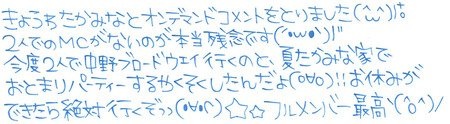 きょうちたかみなとオンデマンドコメントをとりました(^ω^)!?。
2人でのMCがないのが本当残念です('・ω・`)!!
今度2人で中野ブロードウェイ行くのと、夏たかみな家で
おとまりパーティーするやくそくしたんだよ(°∀°)!!お休みが
できたら絶対行くぞっっ(°∀°)☆☆フルメンバー最高＼(^o^)/